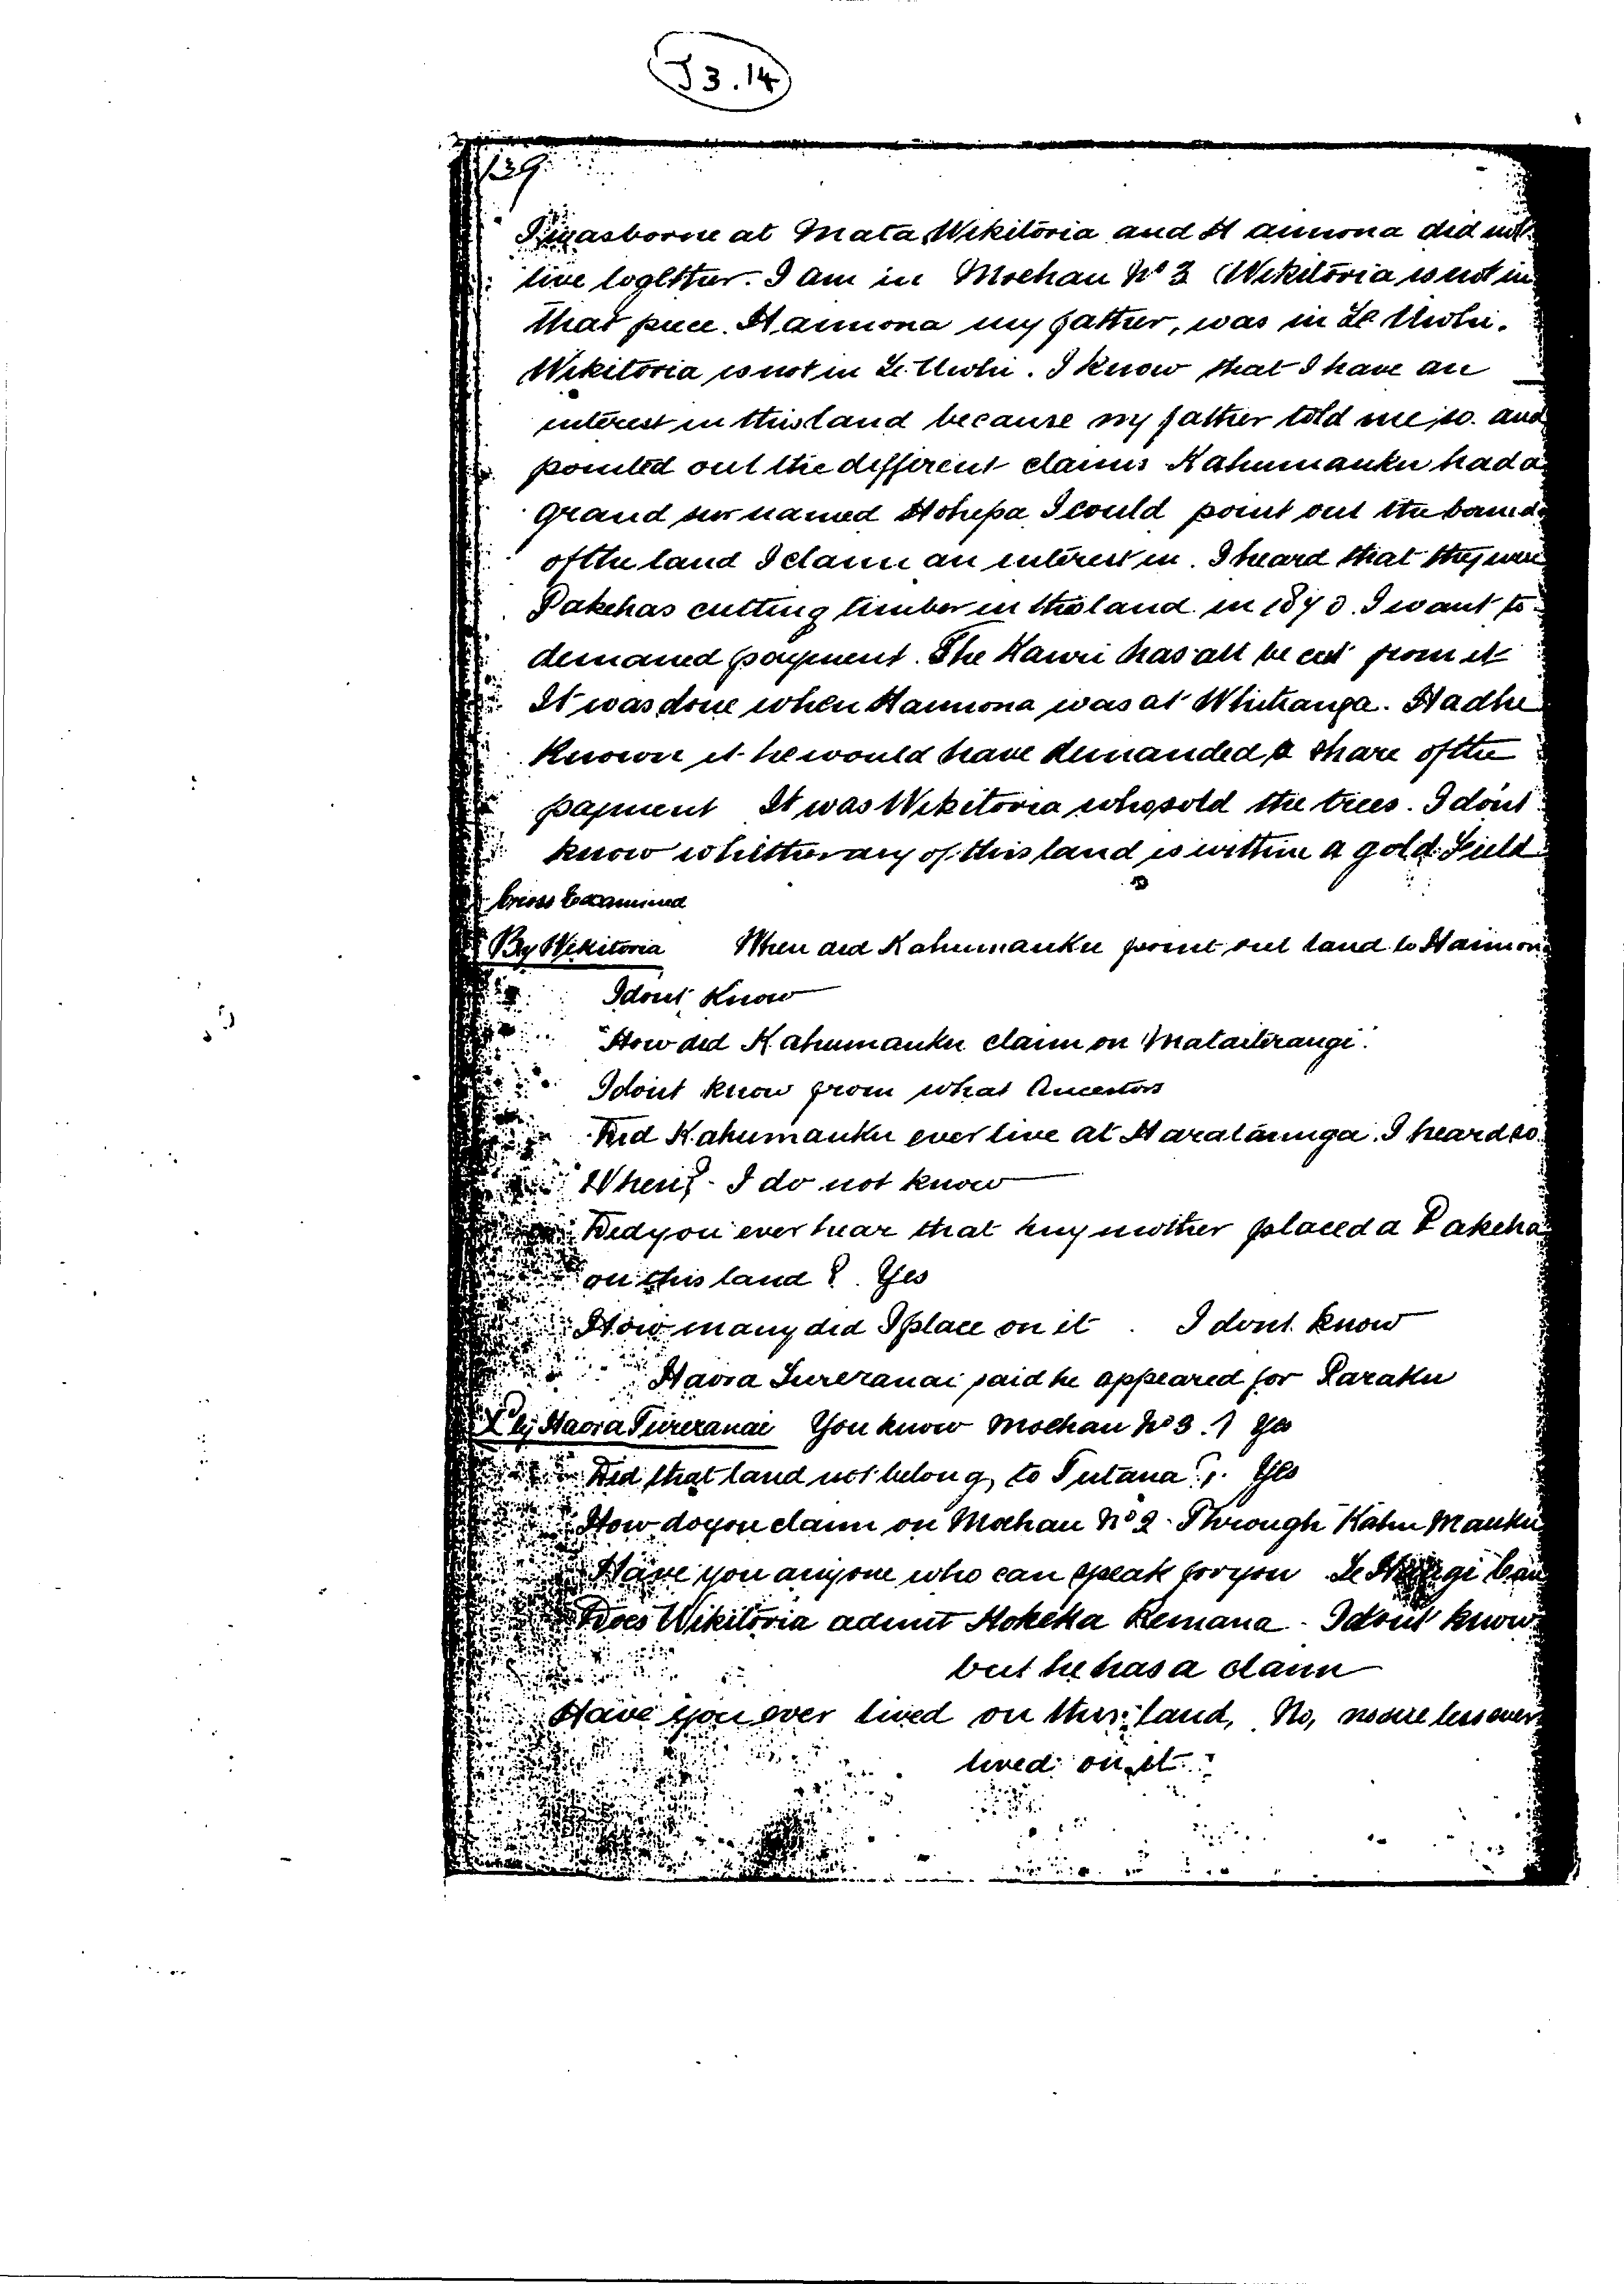 J3.14
139
I was borne at Mata Wikitoria and Haimona did not
live together. I am in Moehau No 3 Wikitoria is not in
that piece. Haimona my father, was in Te Uwhi.
Wikitoria is not in Te Uwhi. I know that I have an
interest in this land because my father told me so. and
pointed out the different claims Kahumanku had a
grand son named Hohepa I could point out the bounds
of the land I claim an interest in. I heard that they were
Pakehas cutting timber in this land in 1870. I want to
demaned payment. The Kauri has all be cut from it
It was done when Haimona was at Whitianga. Had he
known it he would have demanded a share of the
payment It was Wikitoria who sold the trees. I dont
know whether any of this land is within a gold Field
Cross Examined
By Wikitoria When did Kahumanku point out land to Haimon
I dont know
"How did Kahumanku claim on Mataiterangi".
I dont know from what Ancestors
Did Kahumanku ever live at Harataunga. I heard so.
When? - I do not know
Did you ever hear that my mother placed a Pakeha
on this land? Yes
How many did I place on it . I dont know
Haora Tureranai said he appeared for Paraku
X by Haora Tureranai You know Moehau No 3.? Yes
Did that land not belong to Tutana?. Yes
How do you claim on Moehau No 2 - Through Kahu Manku
Have you anyone who can speak for you Te can
Does Wikitoria admit Hokeka Remana - I dont know
but he has a claim
Have you ever lived on this land, No, ever
lived on it